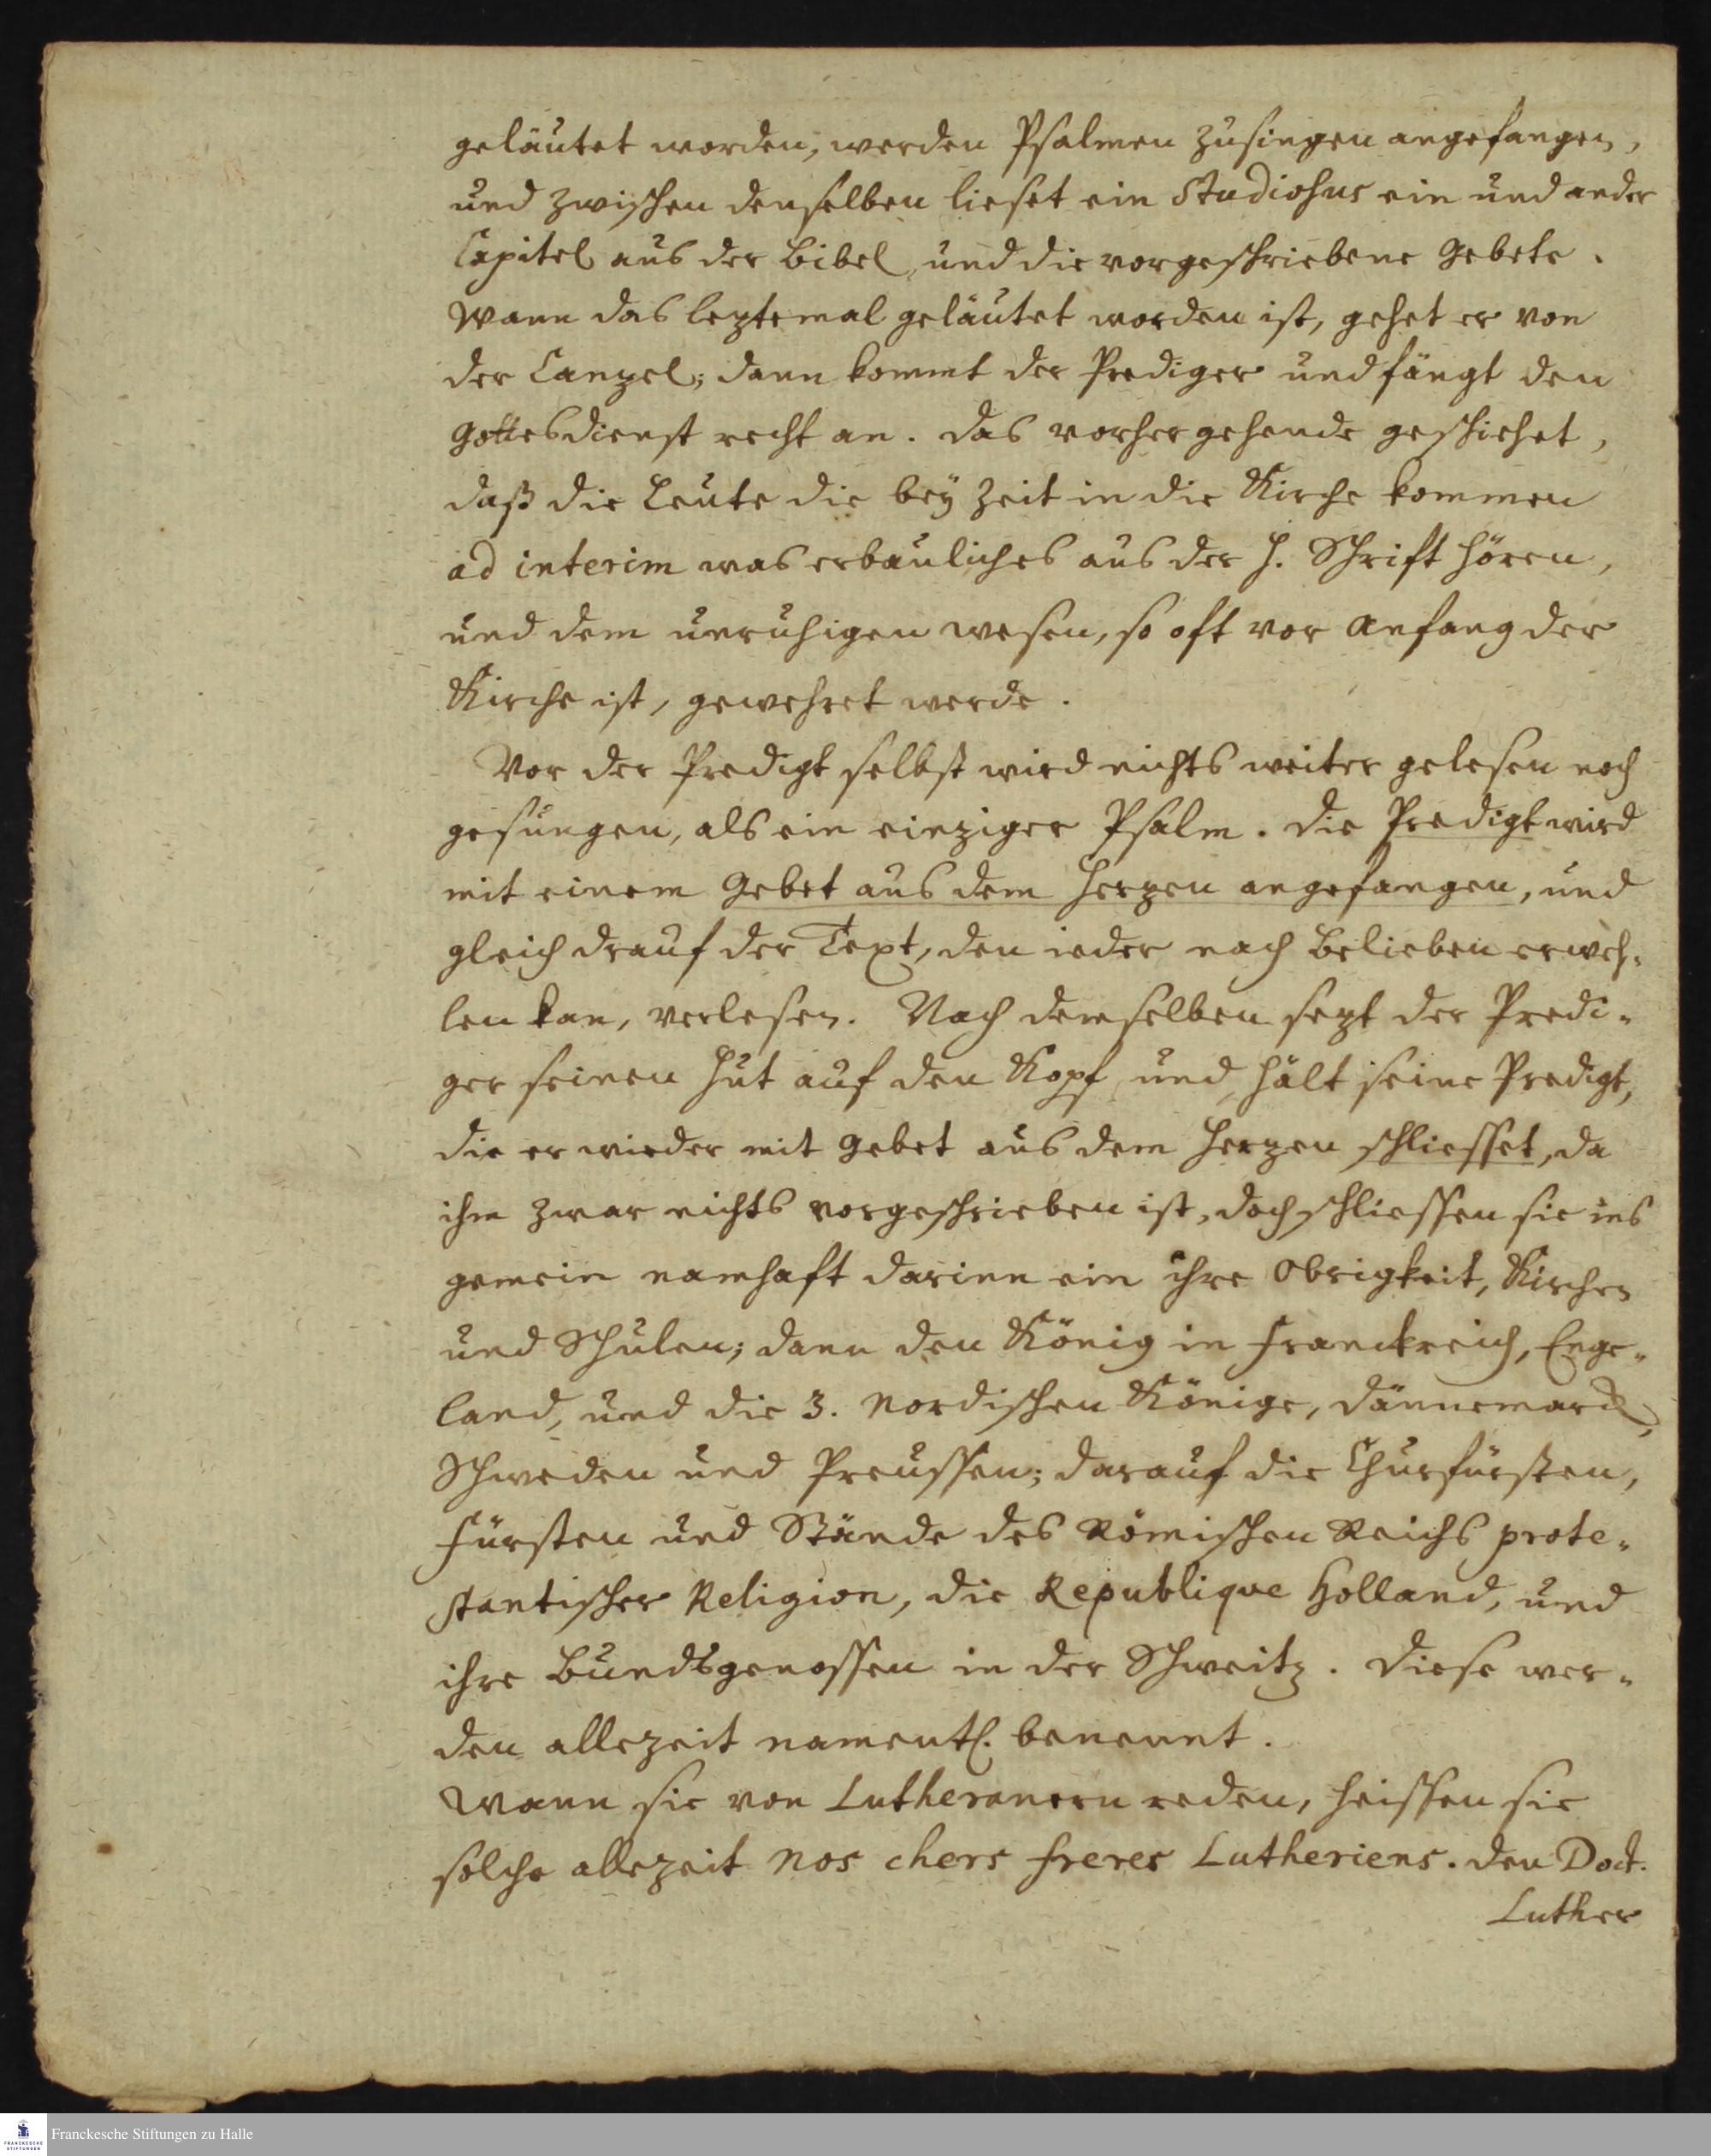 geläutet worden, werden Psalmen zusingen angefangen,
und zwischen denselben lieset ein Studiosus ein und ander
Capitel aus der Bibel, und die vorgeschriebene Gebete.
Wann das leztemal geläutet worden ist, gehet er von
der Canzel; dann kommt der Prediger und fängt den
Gottesdienst recht an. Das vorhergehende geschiehet,
daß die Leute die bey Zeit in die Kirche kommen
ad interim was erbauliches aus der H. Schrift hören,
und dem unruhigen wesen, so oft vor Anfang der
Kirche ist, gewehret werde.
Vor der Predigt selbst wird nichts weiter gelesen noch
gesungen, als ein einziger Psalm. Die Predigt wird
mit einem Gebet aus dem Herzen angefangen, und
gleich drauf der Text, den ieder nach Belieben erweh-
len kan, verlesen. Nach demselben sezt der Predi-
ger seinen Hut auf den Kopf und hält seine Predigt,
die er wieder mit Gebet aus dem Herzen schliesset, da
ihm zwar nichts vorgeschrieben ist, doch schliessen sie ins
gemein namhaft darinn ein ihre Obrigkeit, Kirchen
und Schulen; dann den König in Franckreich, Enge-
land, und die 3. Nordischen Könige, Dännemarck,
Schweden und Preussen; darauf die Churfürsten,
Fürsten und Stände des Römischen Reichs prote-
stantischer Religion, die Republique Holland, und
ihre Bundsgenossen in der Schweitz. Diese wer-
den allezeit namentl. benennt.
Wann sie von Lutheranern reden, heissen sie
solche allezeit nos chers freres Lutheriens. Den Doct.
Luther
Franckesche Stiftungen zu Halle